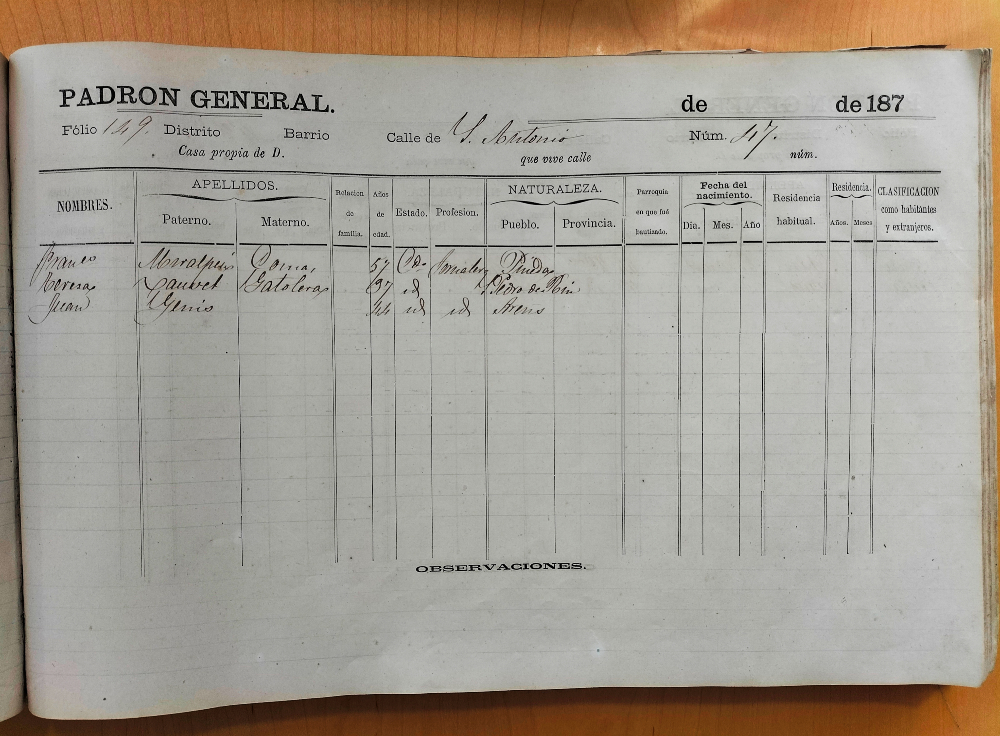 PADRON GENERAL. de de 187
Fólio 149. Distrito Barrio Calle de S. Antonio Núm. 47.
Casa propia de D. que vive calle núm.
NOMBRES. APELLIDOS. Paterno. Materno. Relacion de familia. Años de edad. Estado. Profesion. NATURALEZA. Pueblo. Provincia. Parroquia en que fué bautizado. Fecha del nacimiento. Dia. Mes. Año Residencia habitual. Residencia. Años. Meses CLASIFICACION como habitantes y extranjeros.
Miralpeix Comas 57 Jornalero Pineda
Teresa 37 id Pedro de Riu
Juan Genis 44 id id Arens
OBSERVACIONES.